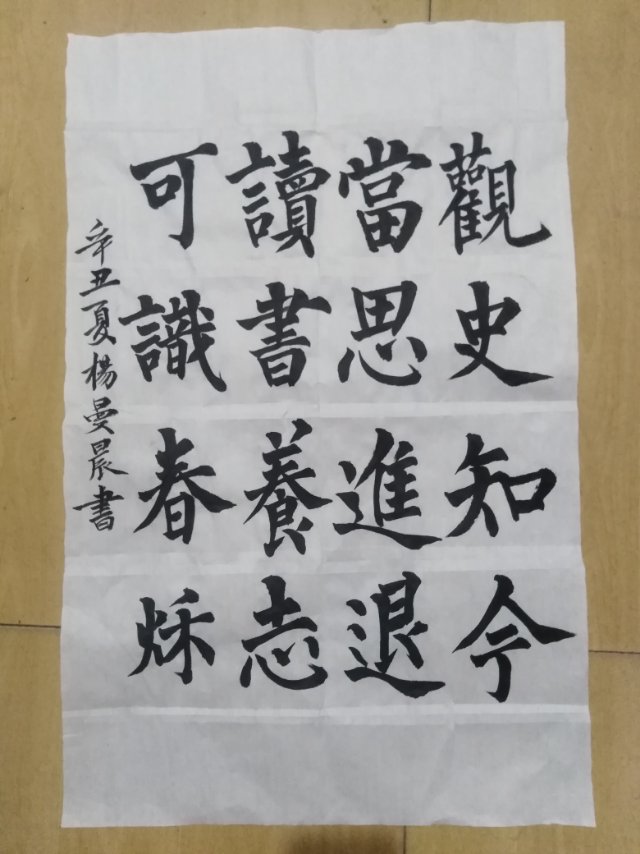 觀史知今
當思進退
讀書養志
可識春秌
辛丑夏楊曼晨書